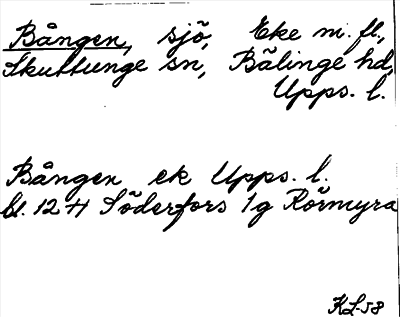 Bången, sjö, Eke m. fl.,
Skuttunge sn, Bälinge hd,
Upps. l.
Bången ek Upps. l.
bl. 12 H Söderfors 1g Rörmyra
KL-58